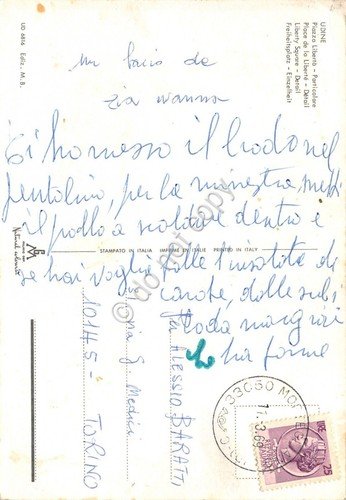 UDINE
Piazza Libertà - Particolare
Place de la Liberté - Détail
Liberty Square - Detail
Freiheitsplatz - Einzelheit
UD 6886 Ediz. M.B.
un bacio da
zia nanna
Ci ho messo il brodo nel
pentolino, per la minestra, metti
il pollo a scaldare dentro e
se hai voglia fatti l'insalata di
carote, dalle subi
to da mangiare
ha fame
STAMPATO IN ITALIA IMPRIMÉ EN ITALIE PRINTED IN ITALY
do not copy
ALESSIO BARATTI
via G. Medici
10145 - TORINO
33050
25